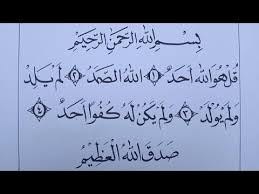 بِسْمِ اللهِ الرَّحْمٰنِ الرَّحِيْمِ
قُلْ هُوَ اللهُ اَحَدٌ ﴿١﴾ اَللهُ الصَّمَدُ ﴿٢﴾ لَمْ يَلِدْ
وَلَمْ يُوْلَدْ ﴿٣﴾ وَلَمْ يَكُنْ لَهُ كُفُوًا اَحَدٌ ﴿٤﴾
صَدَقَ اللهُ الْعَظِيْمُ